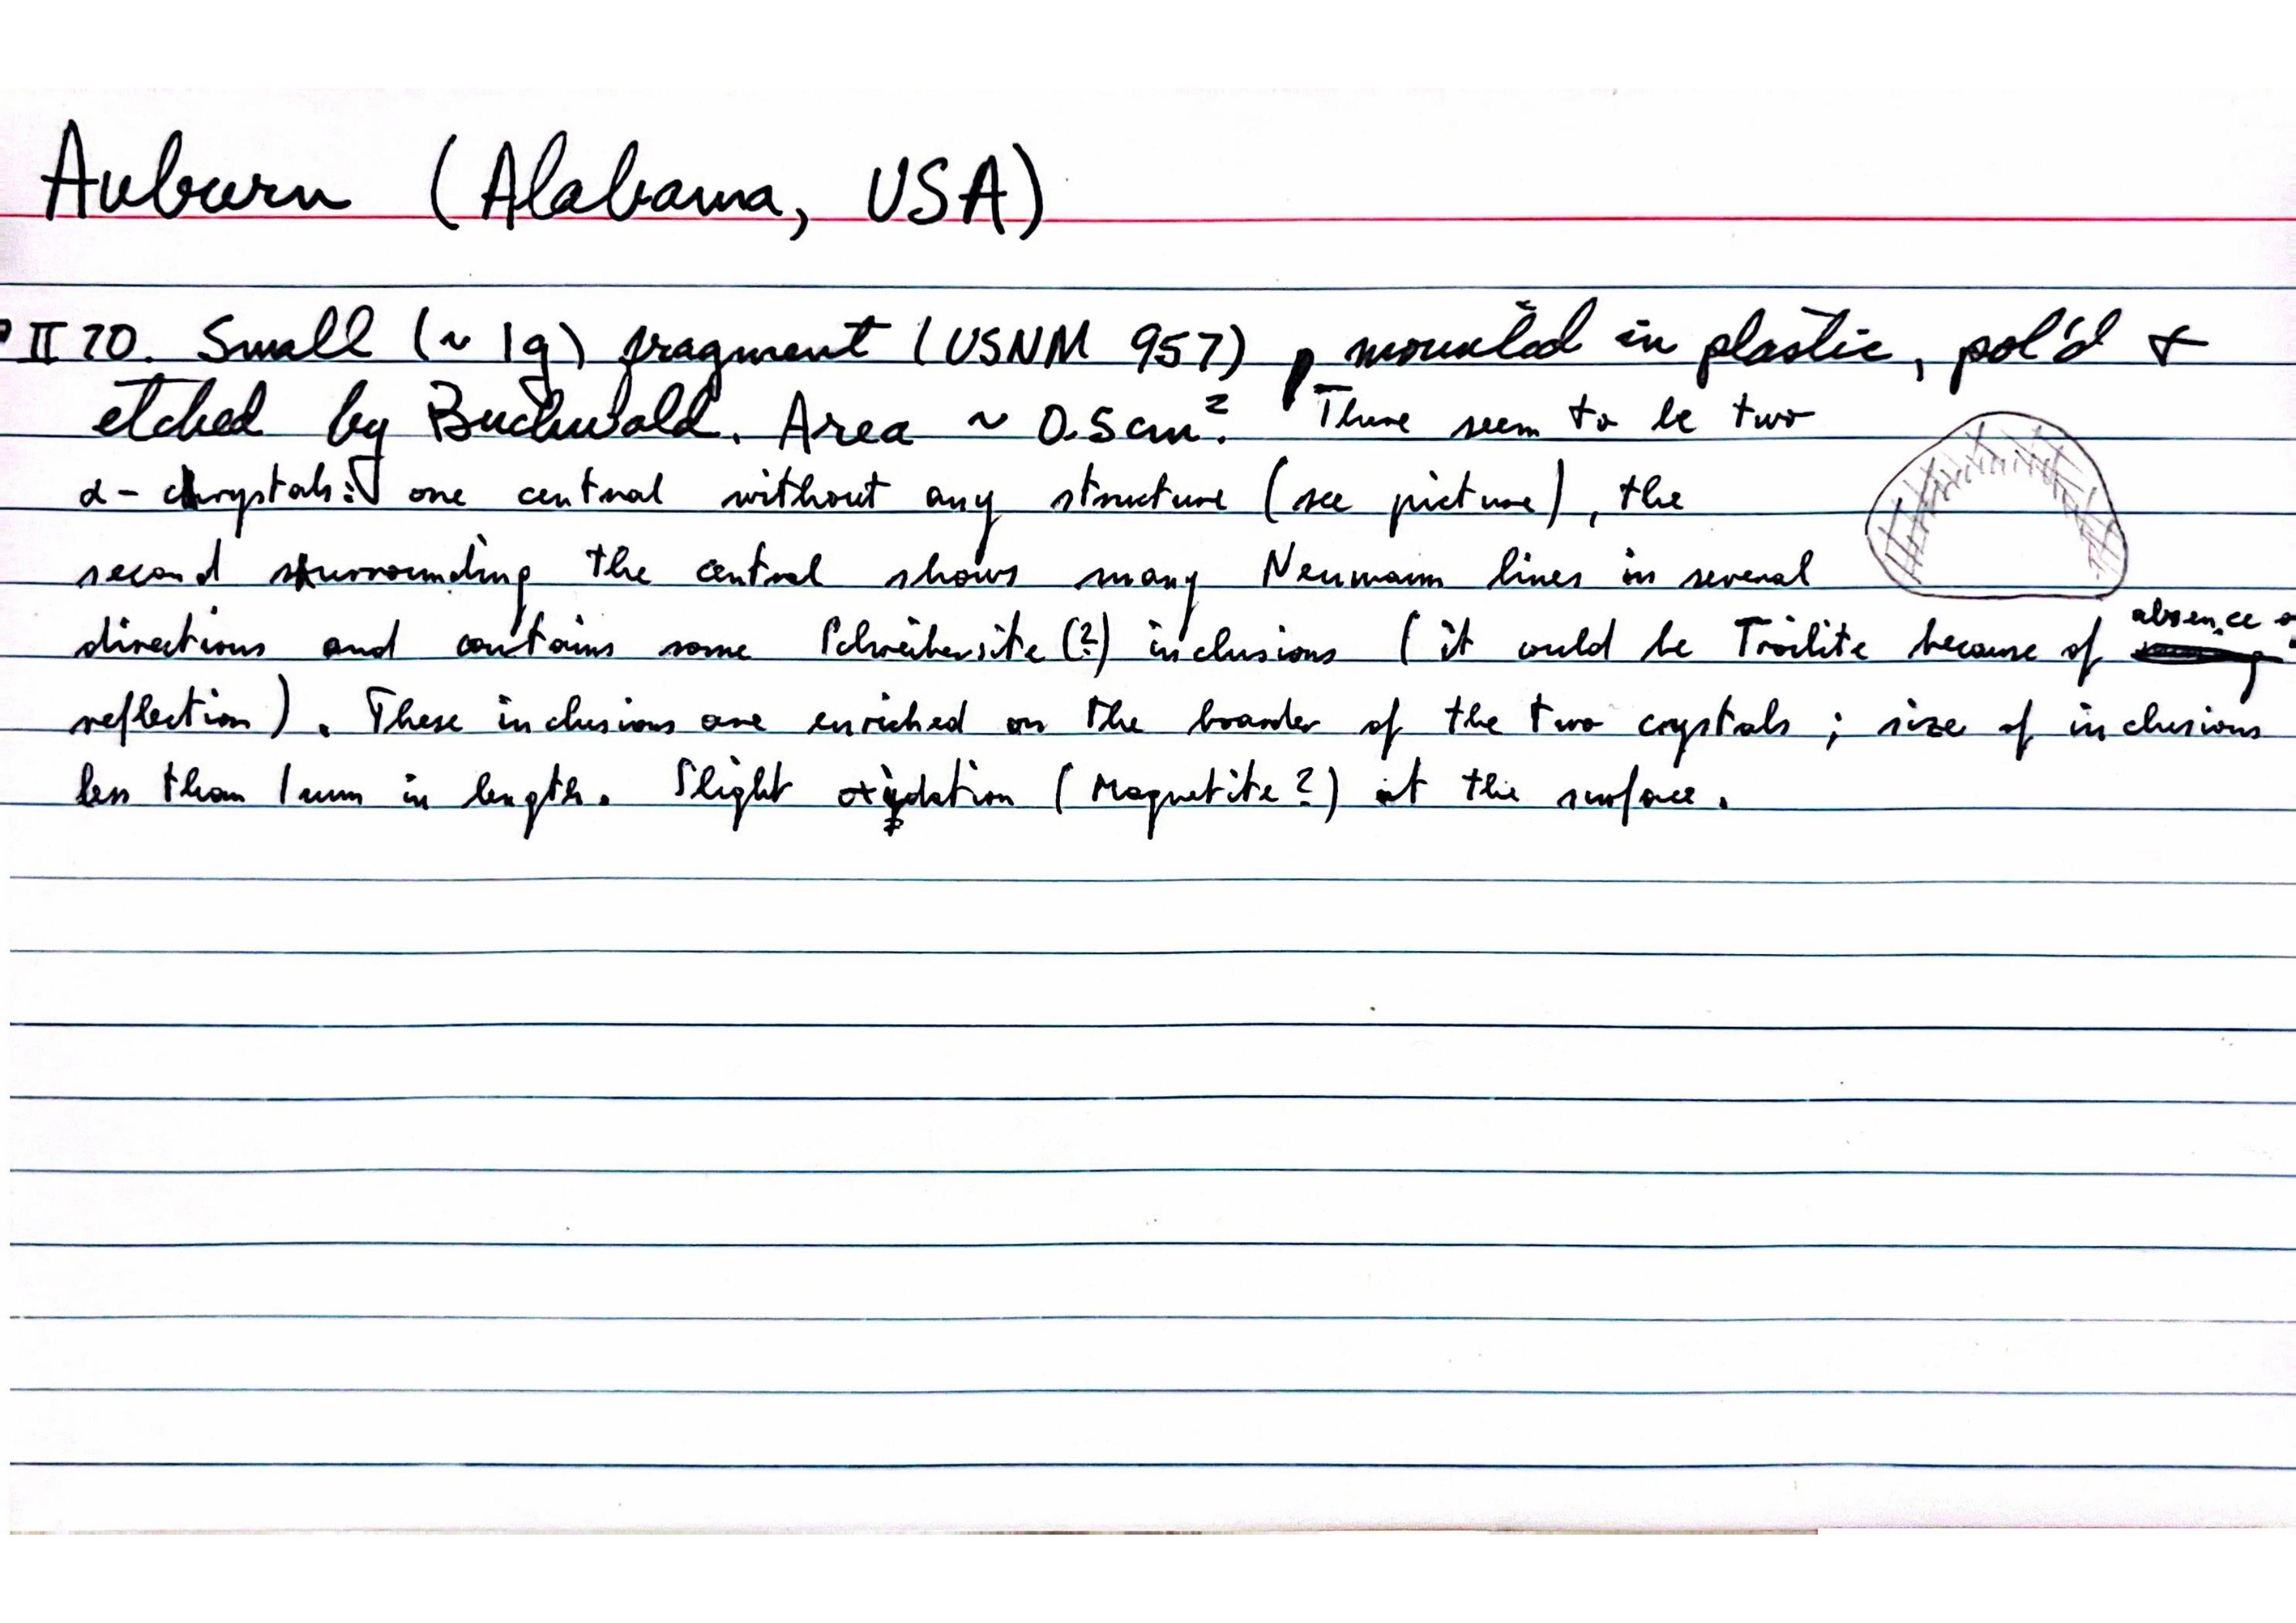 Auburn (Alabama, USA)
II 70. Small (~ 1g) fragment (USNM 957), mounted in plastic, pol'd &
etched by Buchwald. Area ~ 0.5cm². There seem to be two
α-crystals: one central without any structure (see picture), the
second surrounding the central shows many Neumann lines in several
directions and contains some Schreibersite (?) inclusions (it could be Troilite because of absence
reflection). These inclusions are enriched on the boarder of the two crystals; size of inclusions
less than 1mm in length. Slight oxydation (Magnetite?) at the surface.